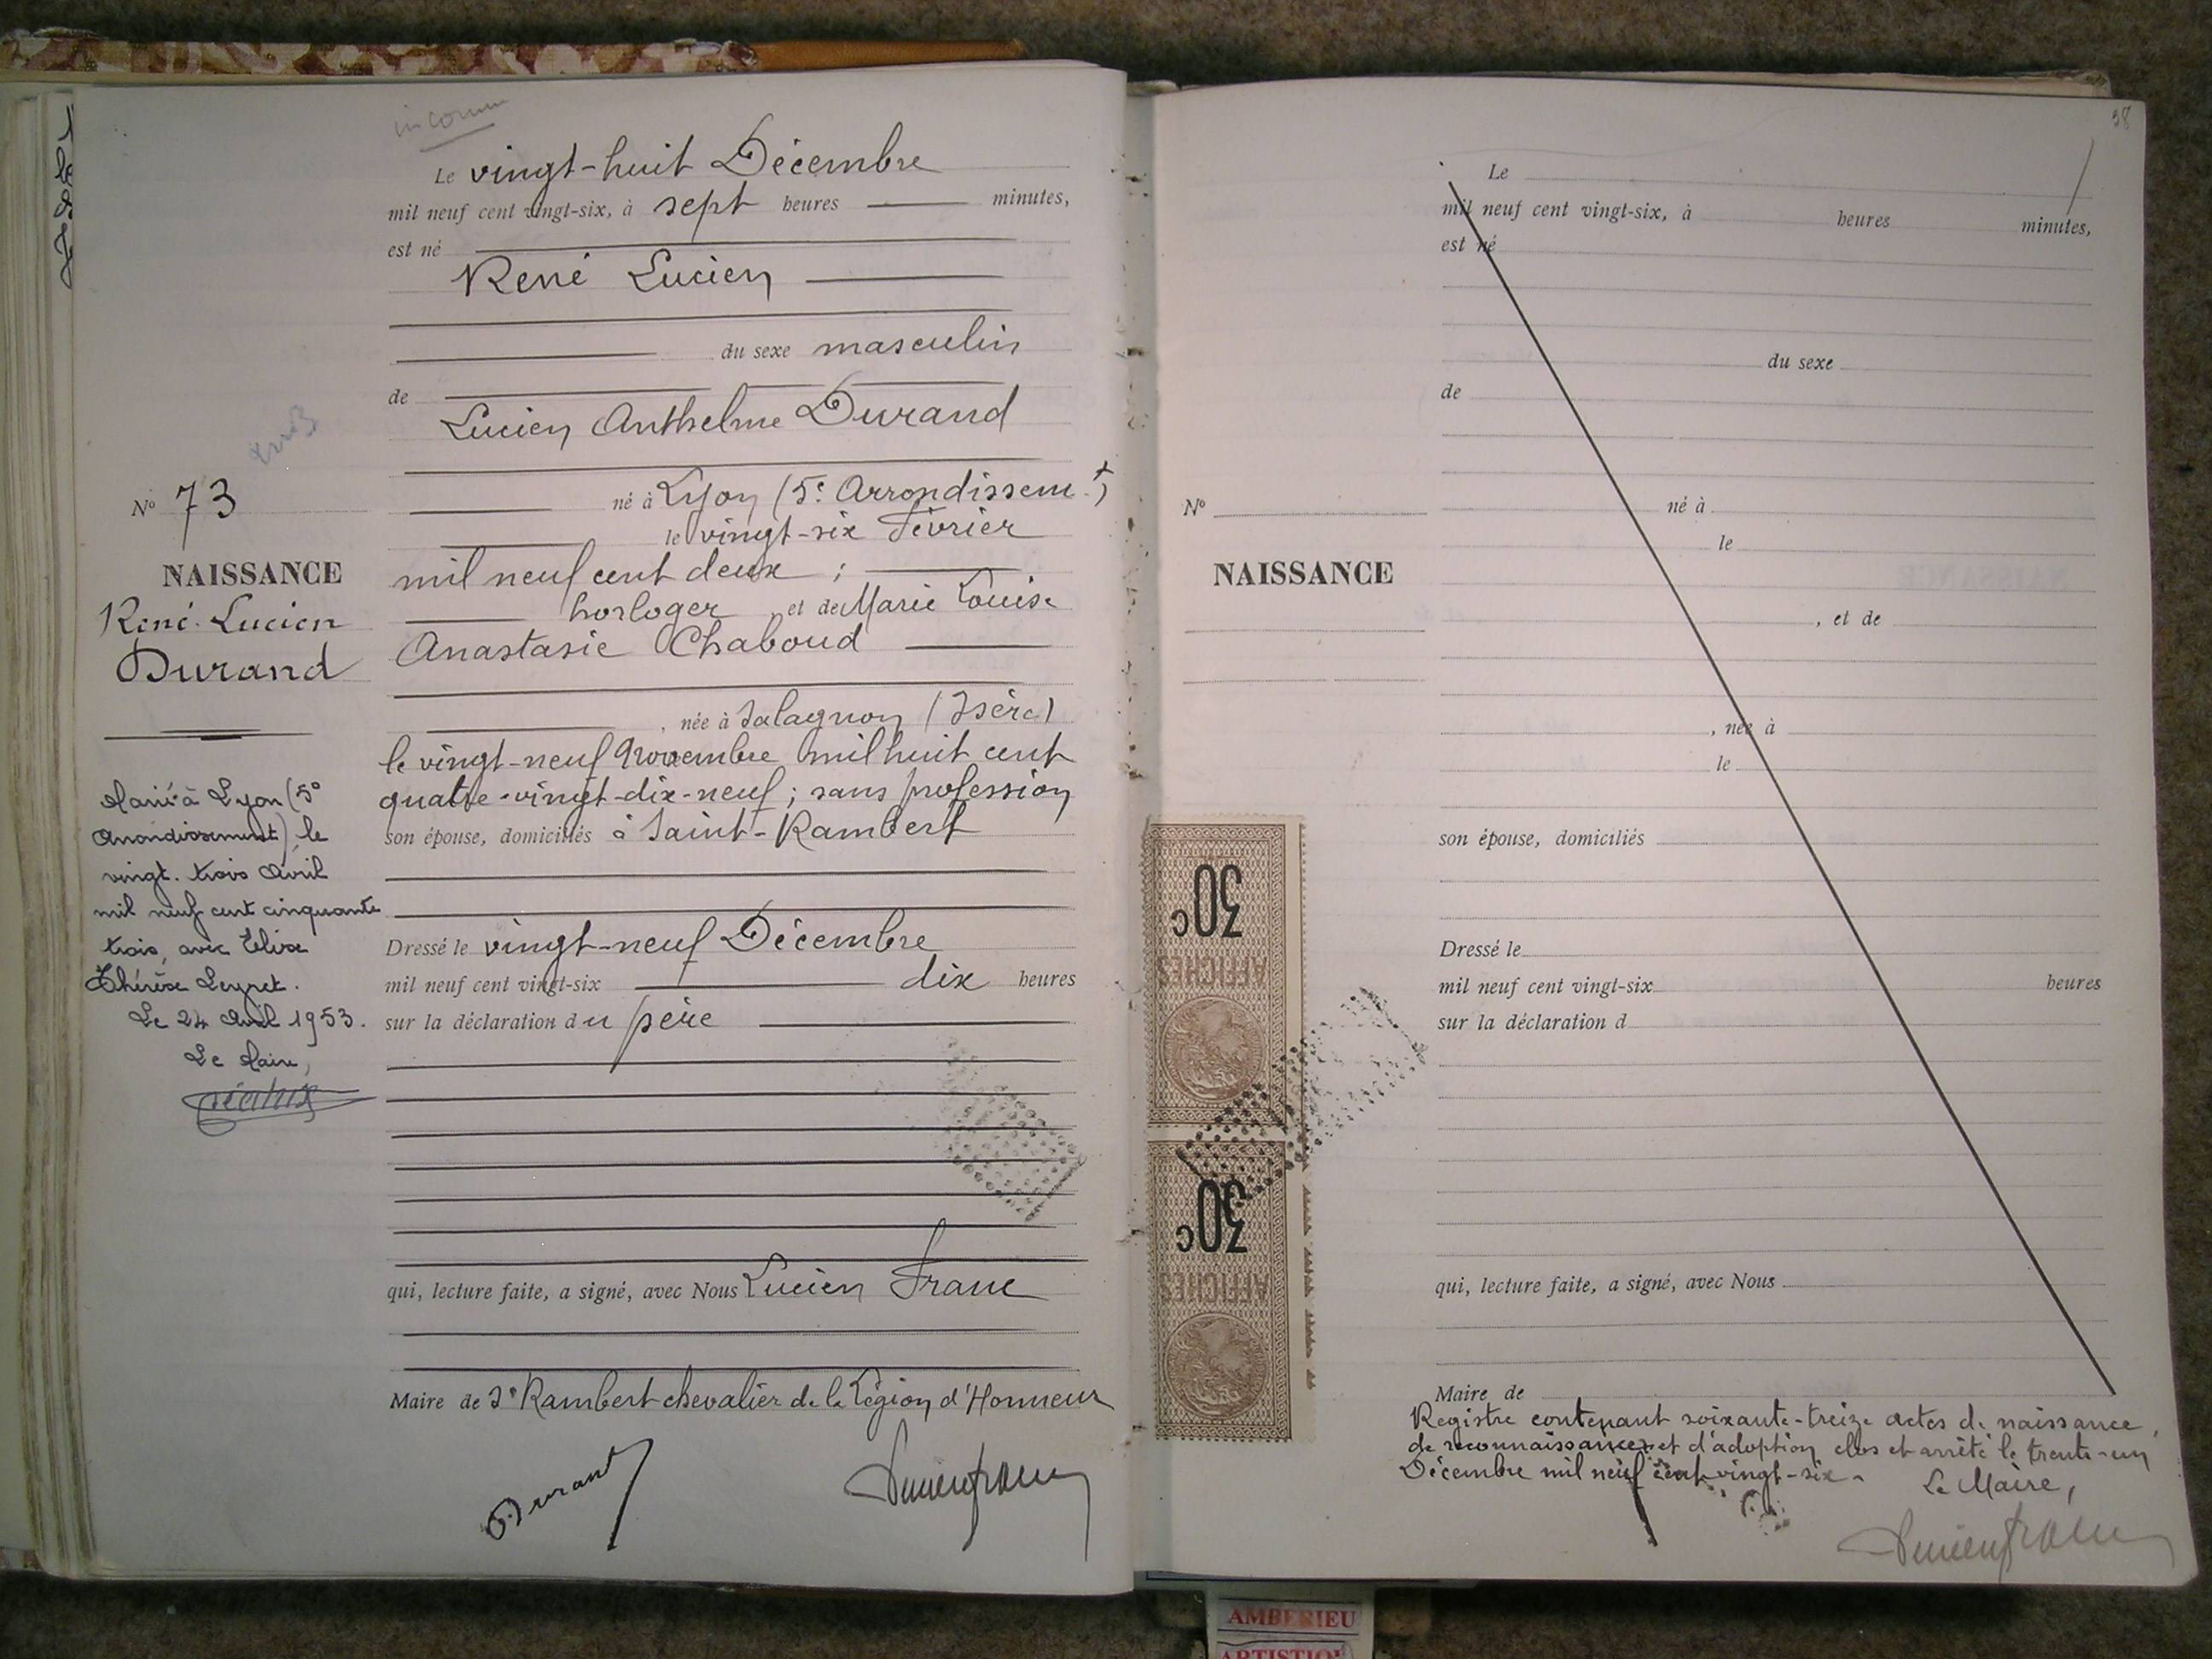 Le vingt-huit Décembre
mil neuf cent vingt-six, à sept heures minutes,
est né
René Lucien
du sexe masculin
de
Lucien Anthelme Durand
né à Lyon (5e Arrondissemt)
le vingt-six Février
mil neuf cent deux ;
horloger , et de Marie Louise
Anastasie Chaboud
, née à Salagnon (Isère)
le vingt-neuf Novembre mil huit cent
quatre-vingt-dix-neuf ; sans profession
son épouse, domiciliés à Saint-Rambert
Dressé le vingt-neuf Décembre
mil neuf cent vingt-six dix heures
sur la déclaration du père
qui, lecture faite, a signé, avec Nous Lucien Franc
Maire de St Rambert chevalier de la Légion d'Honneur
Durant
No 73
NAISSANCE
René Lucien
Durand
Marié à Lyon (5e
arrondissement), le
vingt-trois Avril
mil neuf cent cinquante
trois, avec Elise
Thérèse Leyret.
Le 24 Avril 1953.
Le Maire,
30c
AFFICHES
30c
AFFICHES
38
Le
mil neuf cent vingt-six, à heures minutes,
est né
du sexe
de
né à
le
, et de
, née à
le
son épouse, domiciliés
Dressé le
mil neuf cent vingt-six heures
sur la déclaration d
qui, lecture faite, a signé, avec Nous
Maire de
No
NAISSANCE
Registre contenant soixante-treize actes de naissance,
de reconnaissances et d'adoption clos et arrêté le trente-un
Décembre mil neuf cent vingt-six.
Le Maire,
AMBERIEU